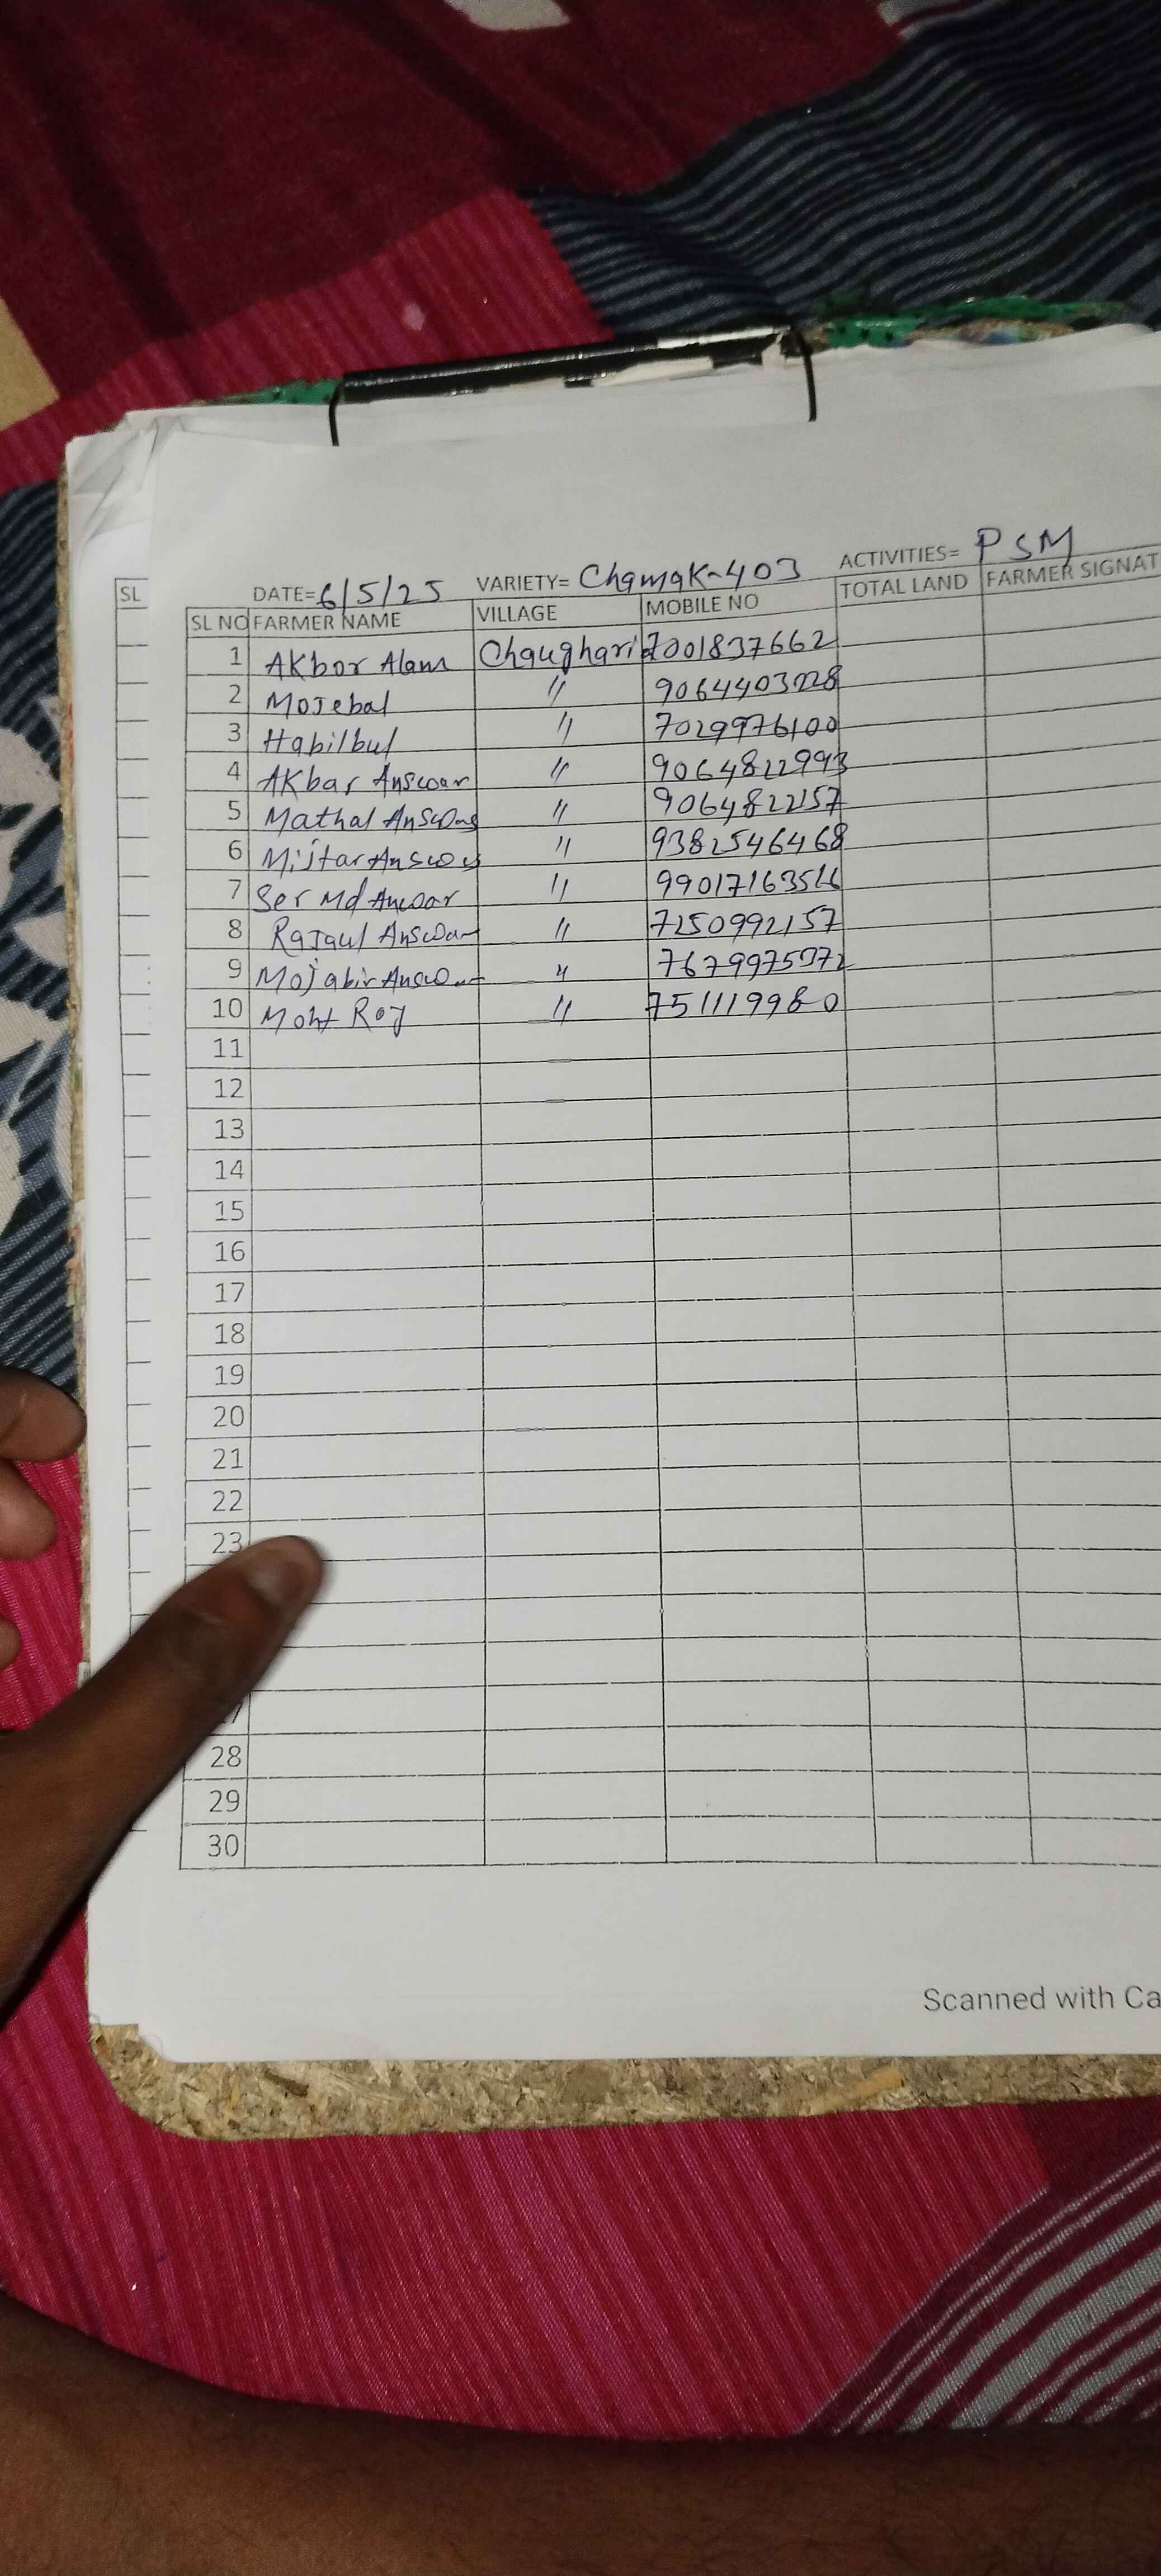 SL
DATE=6/5/25 VARIETY= Chamak-403 ACTIVITIES= PSM
SL NO FARMER NAME VILLAGE MOBILE NO TOTAL LAND FARMER SIGNAT
1 AKbor Alam Chaughari 7001837662
2 Mojebal " 9064403228
3 Habilbul " 7029976100
4 AKbar Answar " 9064822993
5 Mathal " 9064822157
6 " 9382546468
7 Ser Md Anwar "
8 Rajaul Answar " 7250992157
9 Mojabir "
10 Roy " 7511119980
11
12
13
14
15
16
17
18
19
20
21
22
23
28
29
30
Scanned with Ca